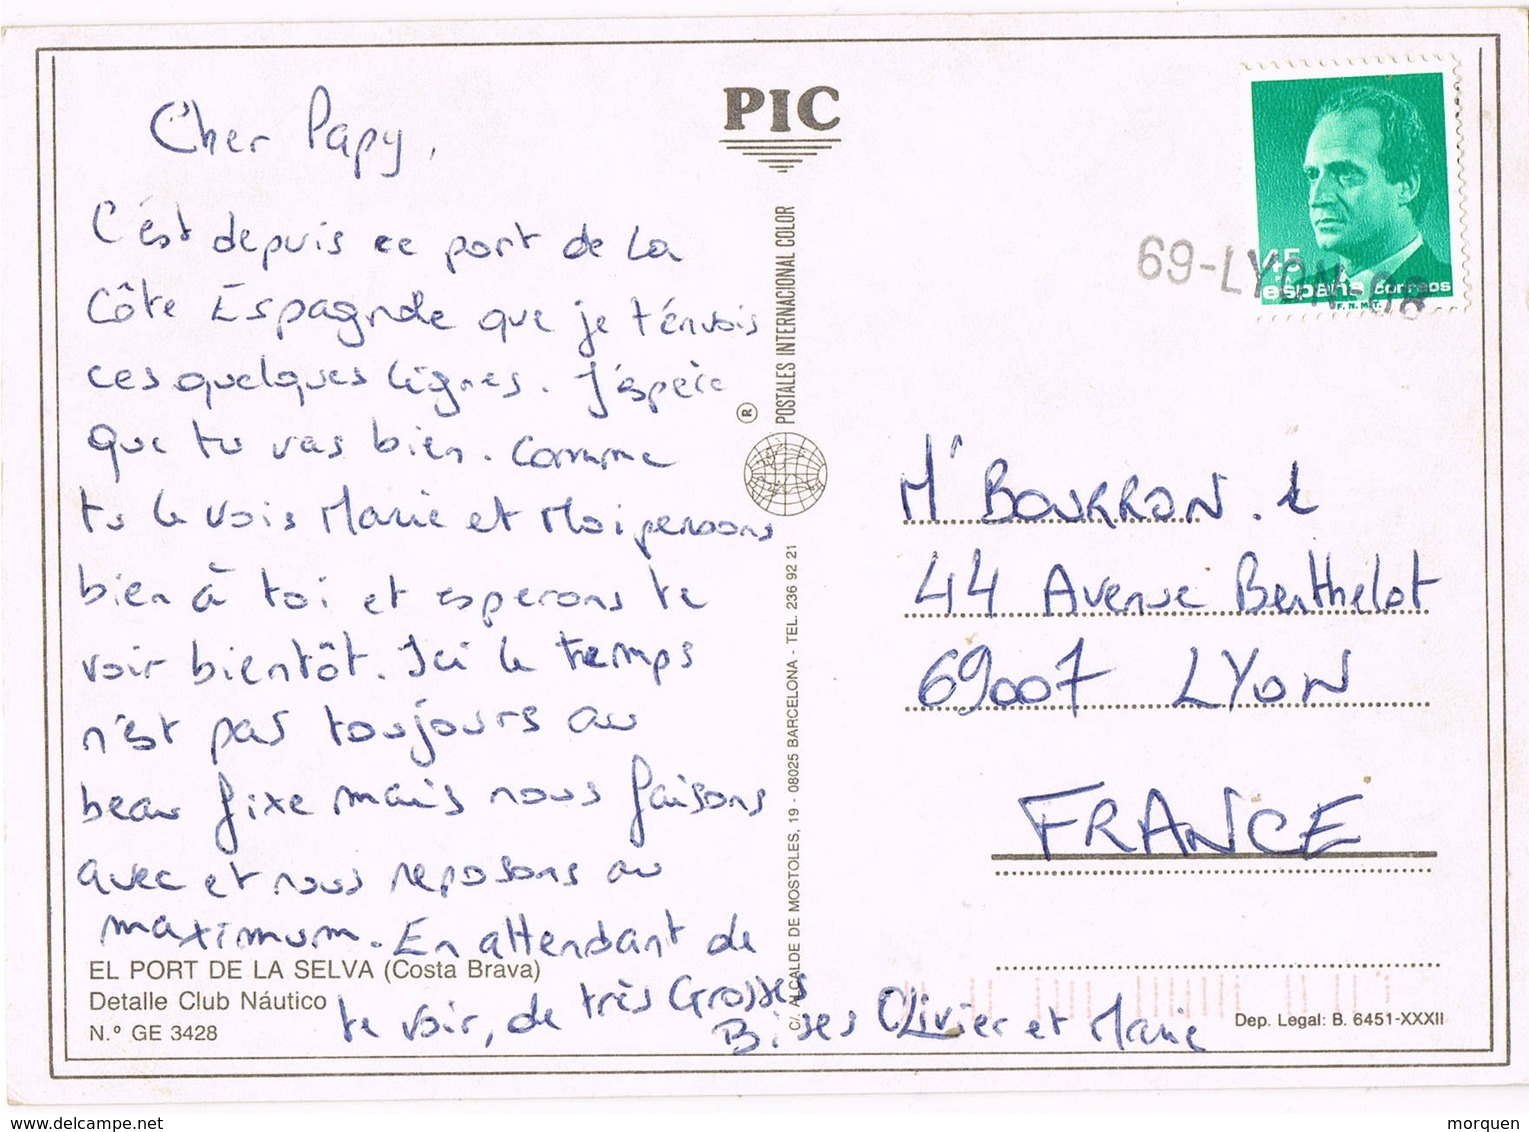 Cher Papy,
C'est depuis ce port de La
Côte Espagnole que je t'envois
ces quelques lignes. J'espère
que tu vas bien. Comme
tu le vois Marie et Moi pensons
bien à toi et esperons te
voir bientôt. Ici le temps
n'est pas toujours au
beau fixe mais nous faisons
avec et nous reposons au
maximum. En attendant de
te voir, de très Grosses
Bises Olivier et Marie
EL PORT DE LA SELVA (Costa Brava)
Detalle Club Náutico
N.º GE 3428
PIC
POSTALES INTERNACIONAL COLOR
®
C/. ALCALDE DE MOSTOLES, 19 - 08025 BARCELONA - TEL. 236 92 21
45
españa correos
F.N.M.T.
69-LYON 08
Mr BOURRON.
44 Avenue Berthelot
69007 LYON
FRANCE
Dep. Legal: B. 6451-XXXII
delcampe.net
morquen